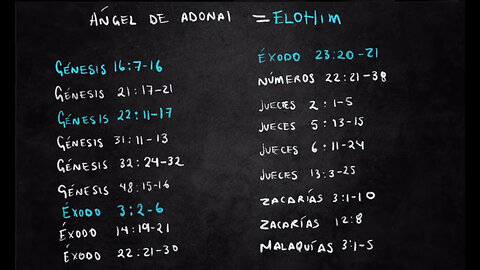 ÁNGEL DE ADONAI = ELOHIM
GÉNESIS 16:7-16
GÉNESIS 21:17-21
GÉNESIS 22:11-17
GÉNESIS 31:11-13
GÉNESIS 32:24-32
GÉNESIS 48:15-16
ÉXODO 3:2-6
ÉXODO 14:19-21
ÉXODO 22:21-30
ÉXODO 23:20-21
NÚMEROS 22:21-38
JUECES 2:1-5
JUECES 5:13-15
JUECES 6:11-24
JUECES 13:3-25
ZACARÍAS 3:1-10
ZACARÍAS 12:8
MALAQUÍAS 3:1-5